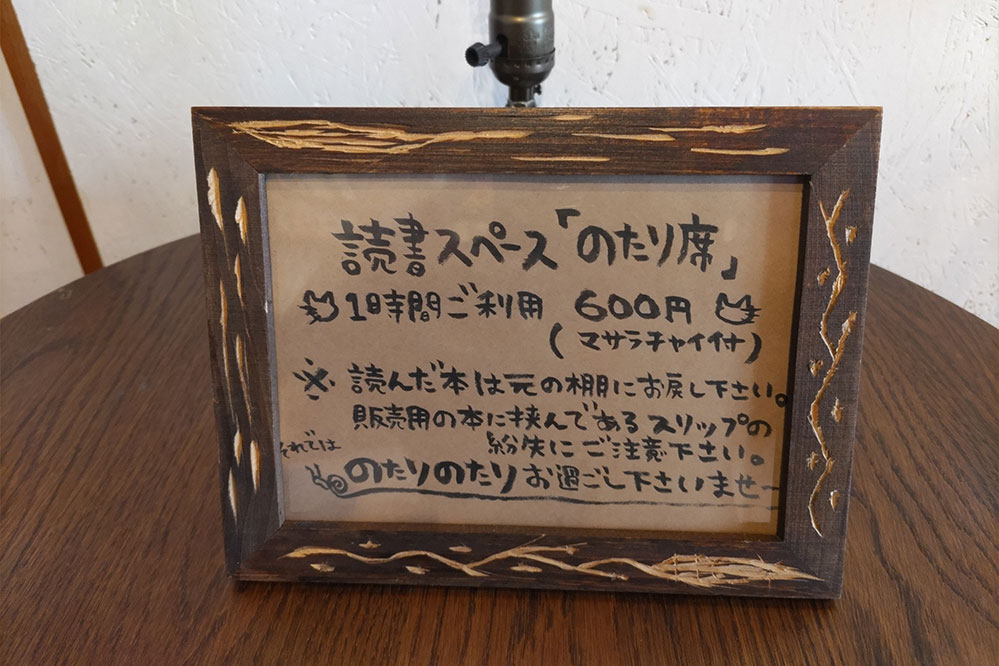 読書スペース「のたり席」
1時間ご利用 600円
(マサラチャイ付)
※ 読んだ本は元の棚にお戻し下さい。
販売用の本に挟んであるスリップの
紛失にご注意下さい。
それでは
のたりのたりお過ごし下さいませ〜